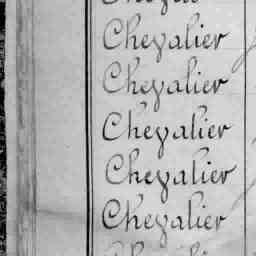 Chevalier
Chevalier
Chevalier
Chevalier
Chevalier